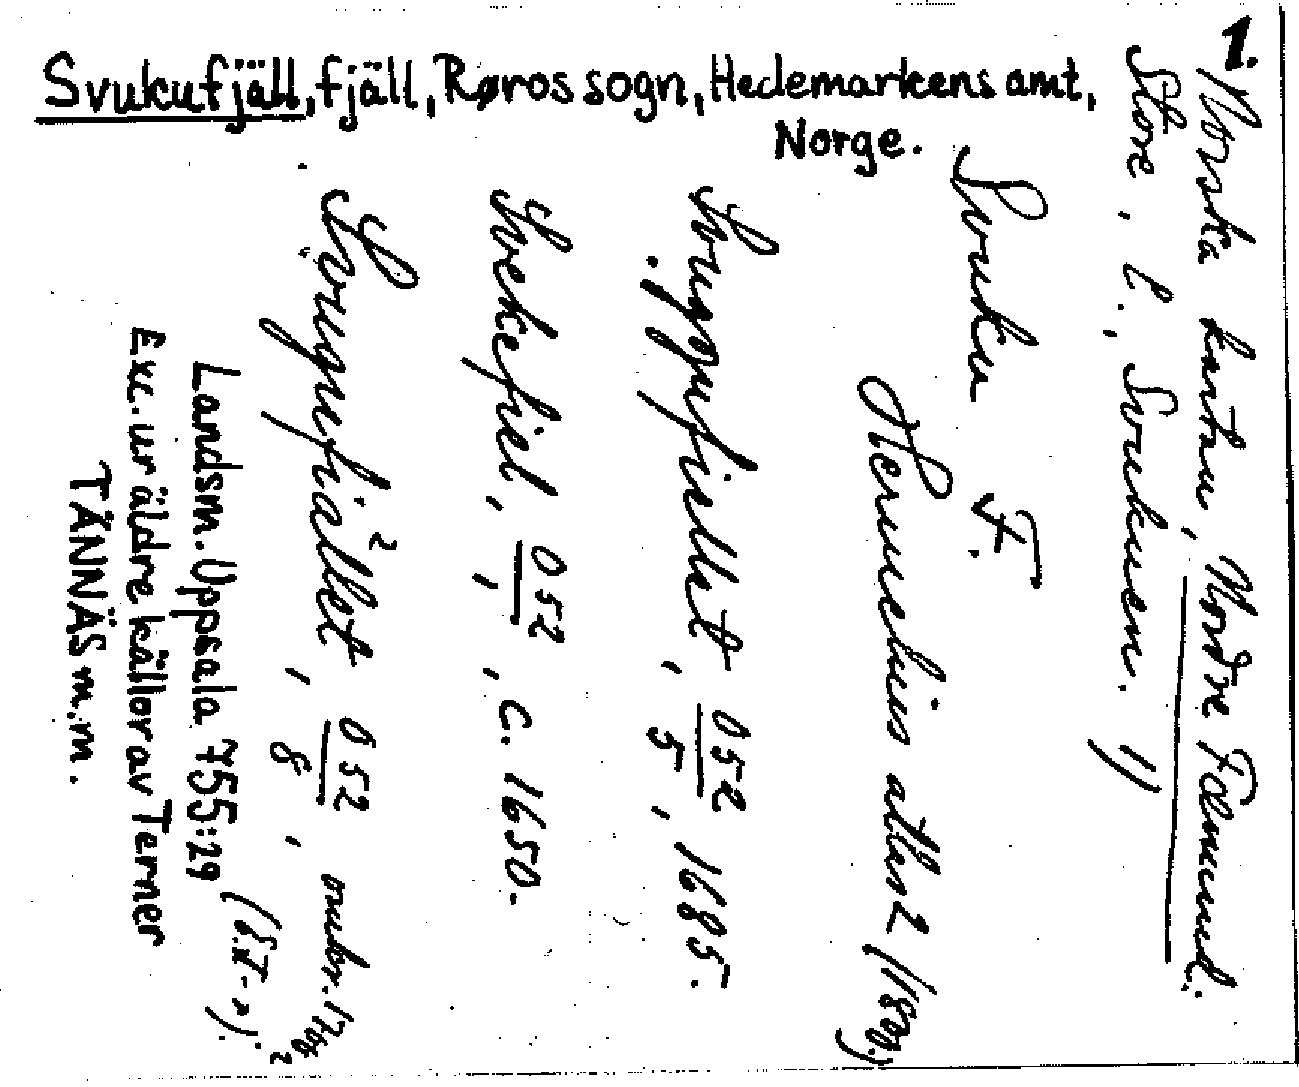 1.
Svukufjäll, fjäll, Røros sogn, Hedemarkens amt,
Norge.
Norska kartan, Nordre Fæmund.
Store, l., Svukuen. 1)
Svuku F.
Hermelins atlas 2
Svuggufjellet, 052/5, 1685.
Svekefiel, 052/, c. 1650.
Svugnefiället, 052/8, omkr.
Landsm. Uppsala 755:29
Exc. ur äldre källor av Terner
TÄNNÄS m.m.